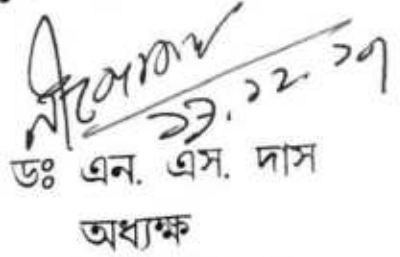 ১৩.১২.১৭
ডঃ এন. এস. দাস
অধ্যক্ষ